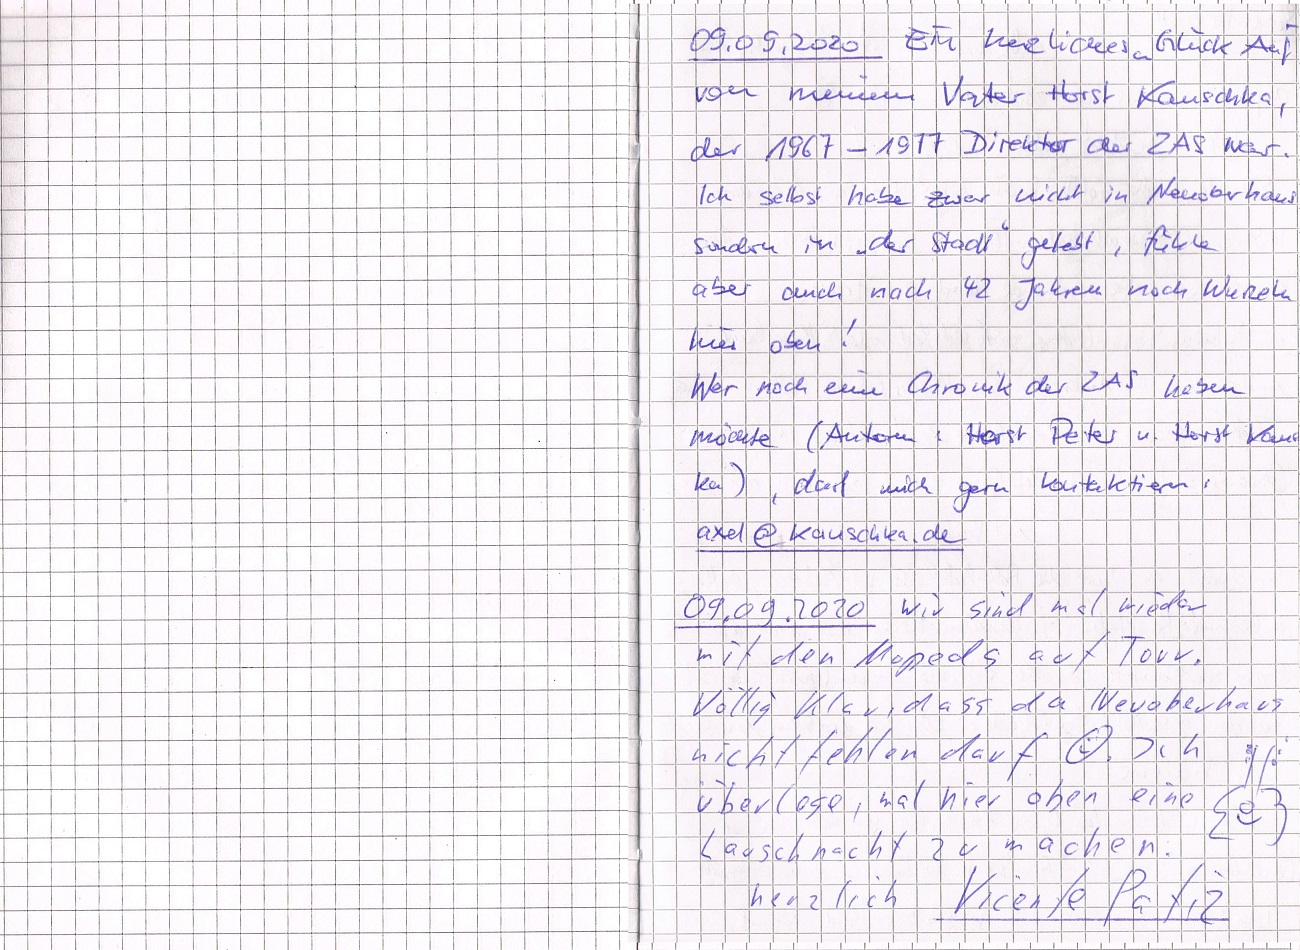 09.09.2020 Ein herzliches Glück Auf
von meinem Vater Horst Kauschka,
der 1967 – 1977 Direktor der ZAS war.
Ich selbst habe zwar nicht in Neuoberhaus
sondern in „der Stadt“ gelebt, fühle
aber auch nach 42 Jahren noch Wurzeln
hier oben!
Wer noch eine Chronik der ZAS haben
möchte (Autoren: Horst Peter u. Horst Kausch
ka), darf mich gern kontaktieren:
axel@kauschka.de
09.09.2020 Wir sind mal wieder
mit den Mopeds auf Tour.
Völlig klar, dass da Neuoberhaus
nicht fehlen darf ☺. Ich
überlege, mal hier oben eine
Lauschnacht zu machen.
herzlich Vicente Patíz